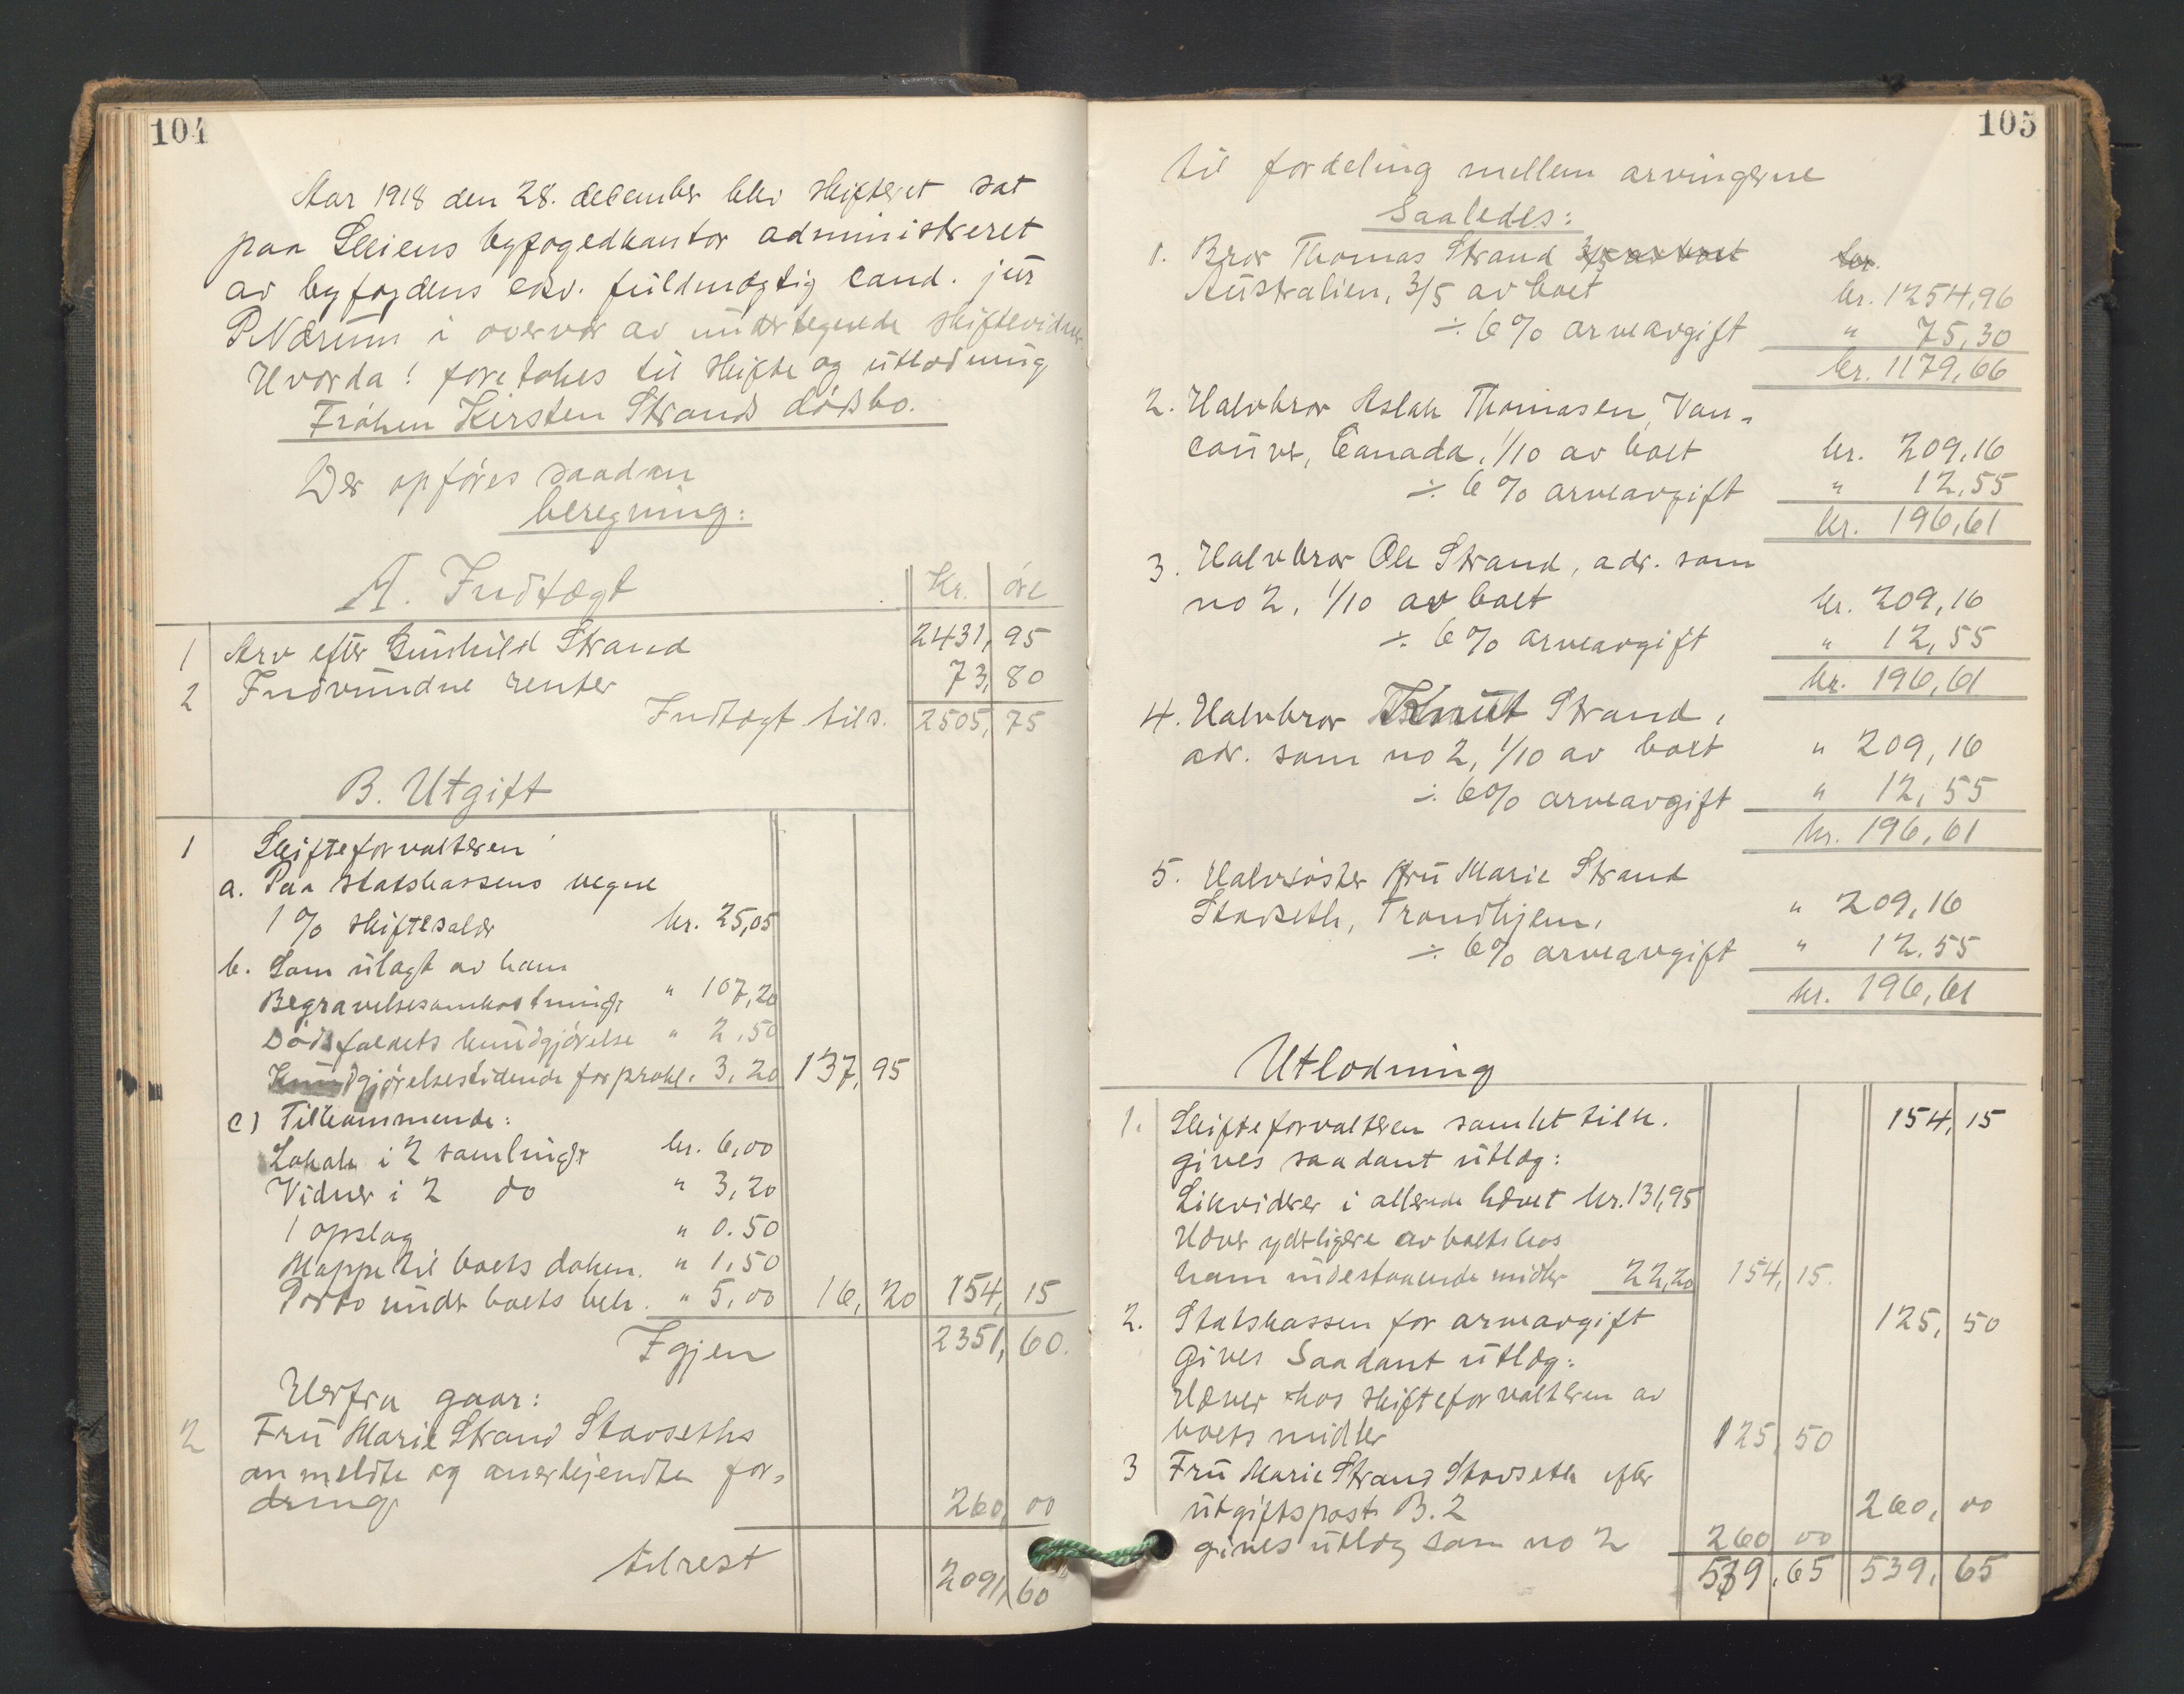 104
Aar 1918 den 28. december blev skifteret sat
paa Skiens byfogedkontor administreret
av byfogdens edsv. fuldmægtig cand. jur
P Nærum i overvær av undertegnede skiftevidner
Hvorda! foretokes til skifte og utlodning
Frøken Kirsten Strands dødsbo.
Der opføres saadan
beregning:
A. Indtægt Kr. øre
1 Arv efter Gunhild Strand 2431, 95
2 Indvundne renter 73, 80
Indtægt tils. 2505, 75
B. Utgift
1 Skifteforvalteren
a. Paa statskassens vegne
1 % skiftesalær kr. 25,05
b. Som utlagt av ham
Begravelsesomkostninger " 107,20
Dødsfaldets kundgjørelse " 2,50
Kundgjørelsestidende for prokl. 3,20 137, 95
c) Tilkommende:
Lokale i 2 samlinger kr. 6,00
Vidner i 2 do " 3,20
1 opslag " 0.50
Mappe til boets dokum. " 1,50
Porto under boets beh. " 5,00 16, 20 154, 15
Igjen 2351, 60.
Herfra gaar:
2 Fru Marie Strand Stavseths
anmeldte og anerkjendte for-
dring 260, 00
tilrest 2091, 60
105
til fordeling mellem arvingerne
Saaledes:
1. Bror Thomas Strand 3/5 av boet kr.
Australien, 3/5 av boet kr. 1254,96
÷ 6 % arveavgift " 75,30
kr. 1179,66
2. Halvbror Aslak Thomasen, Van-
couver, Canada, 1/10 av boet kr. 209,16
÷ 6 % arveavgift " 12,55
kr. 196,61
3. Halvbror Ole Strand, adr. som
no 2, 1/10 av boet kr. 209,16
÷ 6 % arveavgift " 12,55
kr. 196,61
4. Halvbror Knut Strand,
adr. som no 2, 1/10 av boet " 209,16
÷ 6 % arveavgift " 12,55
kr. 196,61
5. Halvsøster fru Marie Strand
Stavseth, Trondhjem, " 209,16
÷ 6 % arveavgift " 12.55
kr. 196,61
Utlodning
1. Skifteforvalteren samlet tilk. 154, 15
gives saadant utlæg:
Likviderer i allerede hævet kr. 131,95
Hæver yderligere av boets hos
ham indestaaende midler 22,20 154, 15.
2. Statskassen for arveavgift 125, 50
Gives Saadant utlæg:
Hæver hos skifteforvalteren av
boets midler 125, 50
3 Fru Marie Strand Stavseth efter
utgiftspost B. 2 260, 00
gives utlæg som no 2 260 00
539, 65 539, 65